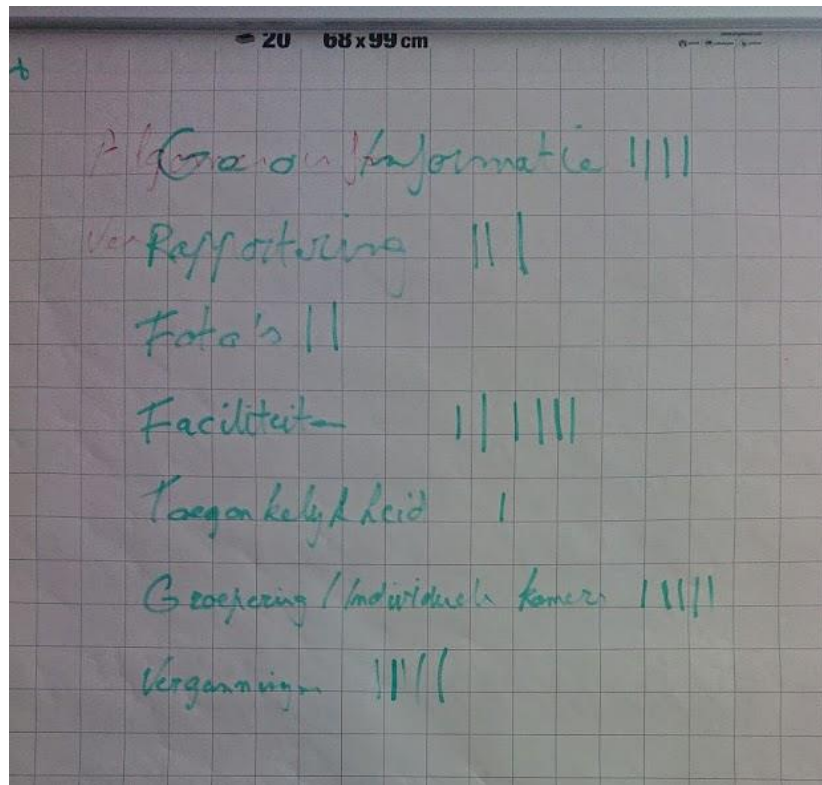 20 68 x 99 cm
Informatie ||||
Rapportering |||
Foto's ||
Faciliteiten ||||||
Toegankelykheid |
Groepering / Individuele kamers |||||
Vergunningen |||||